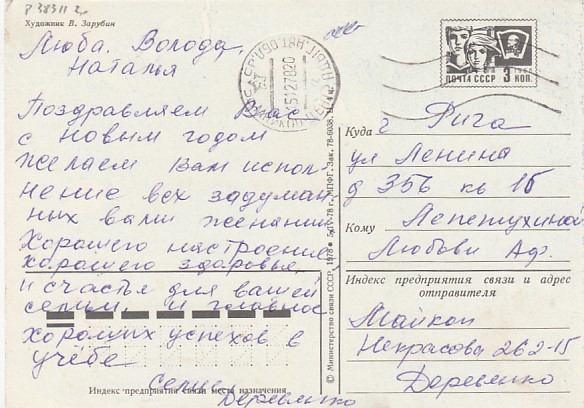 Художник В. Зарубин
Люба. Володя,
Наталья
Поздравляем Вас
с новым годом
желаем Вам испол-
нение всх задуман
ных ваши желании
Хорошего настроение
хорошего здоровья,
и счастья для вашей
семьи, и главное
хороших успехов в
учёбе
семия
Деревянко
Индекс предприятия связи места назначения
© Министерство связи СССР, 1978
ПОЧТА СССР 3 КОП.
Куда г Рига
ул Ленина
д 356 кв 15
Кому Лепетухиной
Любови Аф.
Индекс предприятия связи и адрес
отправителя
Майкоп
Некрасова 262-15
Деревянко